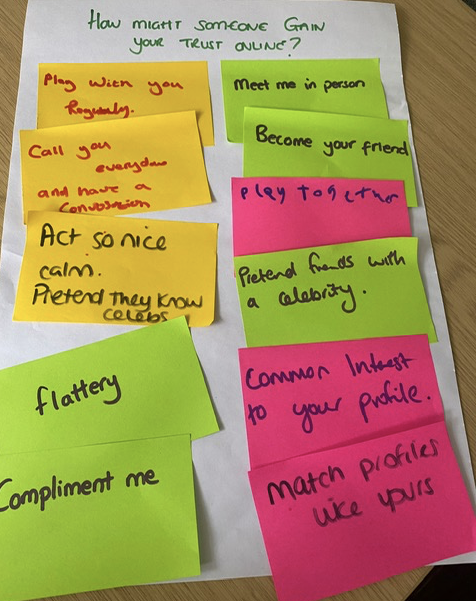 How might someone Gain
your trust online?
Play with you
Regularly.
Call you
everyday
and have a
Conversation
Act so nice
calm.
Pretend They Know
celebs
flattery
Compliment me
Meet me in person
Become your friend
Play together
Pretend friends with
a celebrity.
Common Interest
to your profile.
Match profiles
like yours